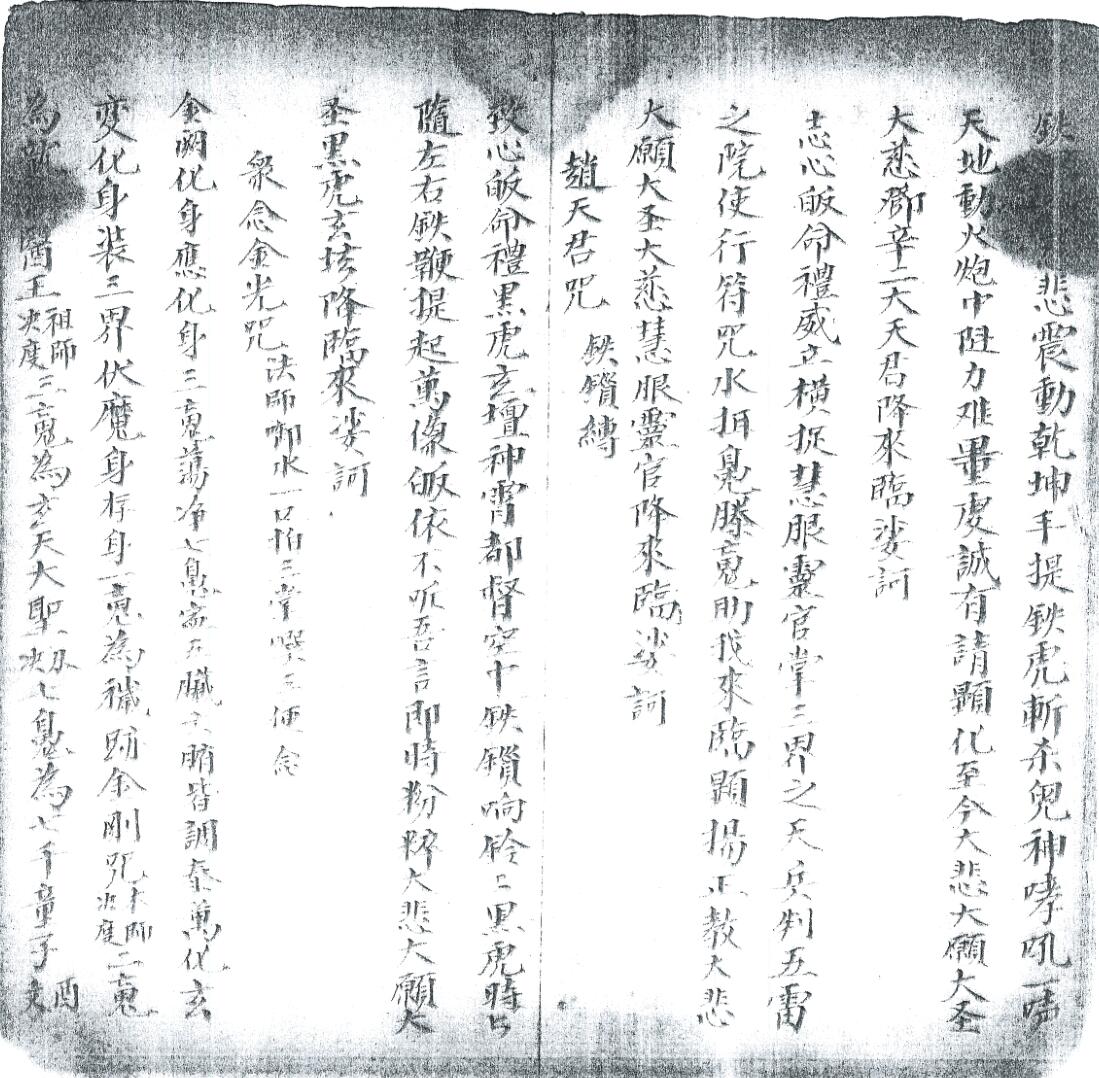 鉄悲震動乾坤手提鉄虎斬杀鬼神哮吼一声
天地動火炮中陞力难量虔誠有請顯化至今大悲大願大圣
大慈鄧辛二大天君降來臨娑訶
志心皈命禮威正橫捉慧眼靈官掌三界之天兵判五雷
之院使行符咒水捐鬼滕鬼助我來臨顕揚正教大悲
大願大圣大慈慧眼靈官降來臨娑訶
趙天君咒 鉄鎖縛
致心皈命禮黑虎玄壇神霄都督空中鉄鎖响鈴二黑虎時占
隨左右鉄鞭提起萬像皈依不听吾言即時粉碎大悲大願大
圣黑虎玄坛降臨來娑訶
衆念金光咒 法師啣水一口拍三掌噀三便念
金闕化身應化身三䰟蕩净七䰟五臟六腑皆調泰萬化玄
变化身装三界伏魔身存身一䰟為穢跡金剛咒本師決度二䰟
為醫王祖師決度三䰟為玄天大聖決七為七千童子